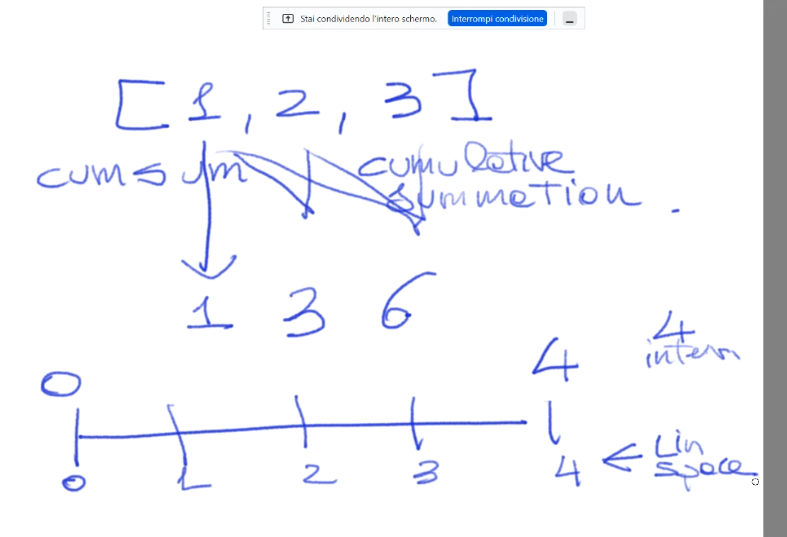 Stai condividendo l'intero schermo. Interrompi condivisione
[1, 2, 3]
cumsum cumulative
summation.
1 3 6
4
intern
0 4
0 1 2 3 4 ← Lin
space